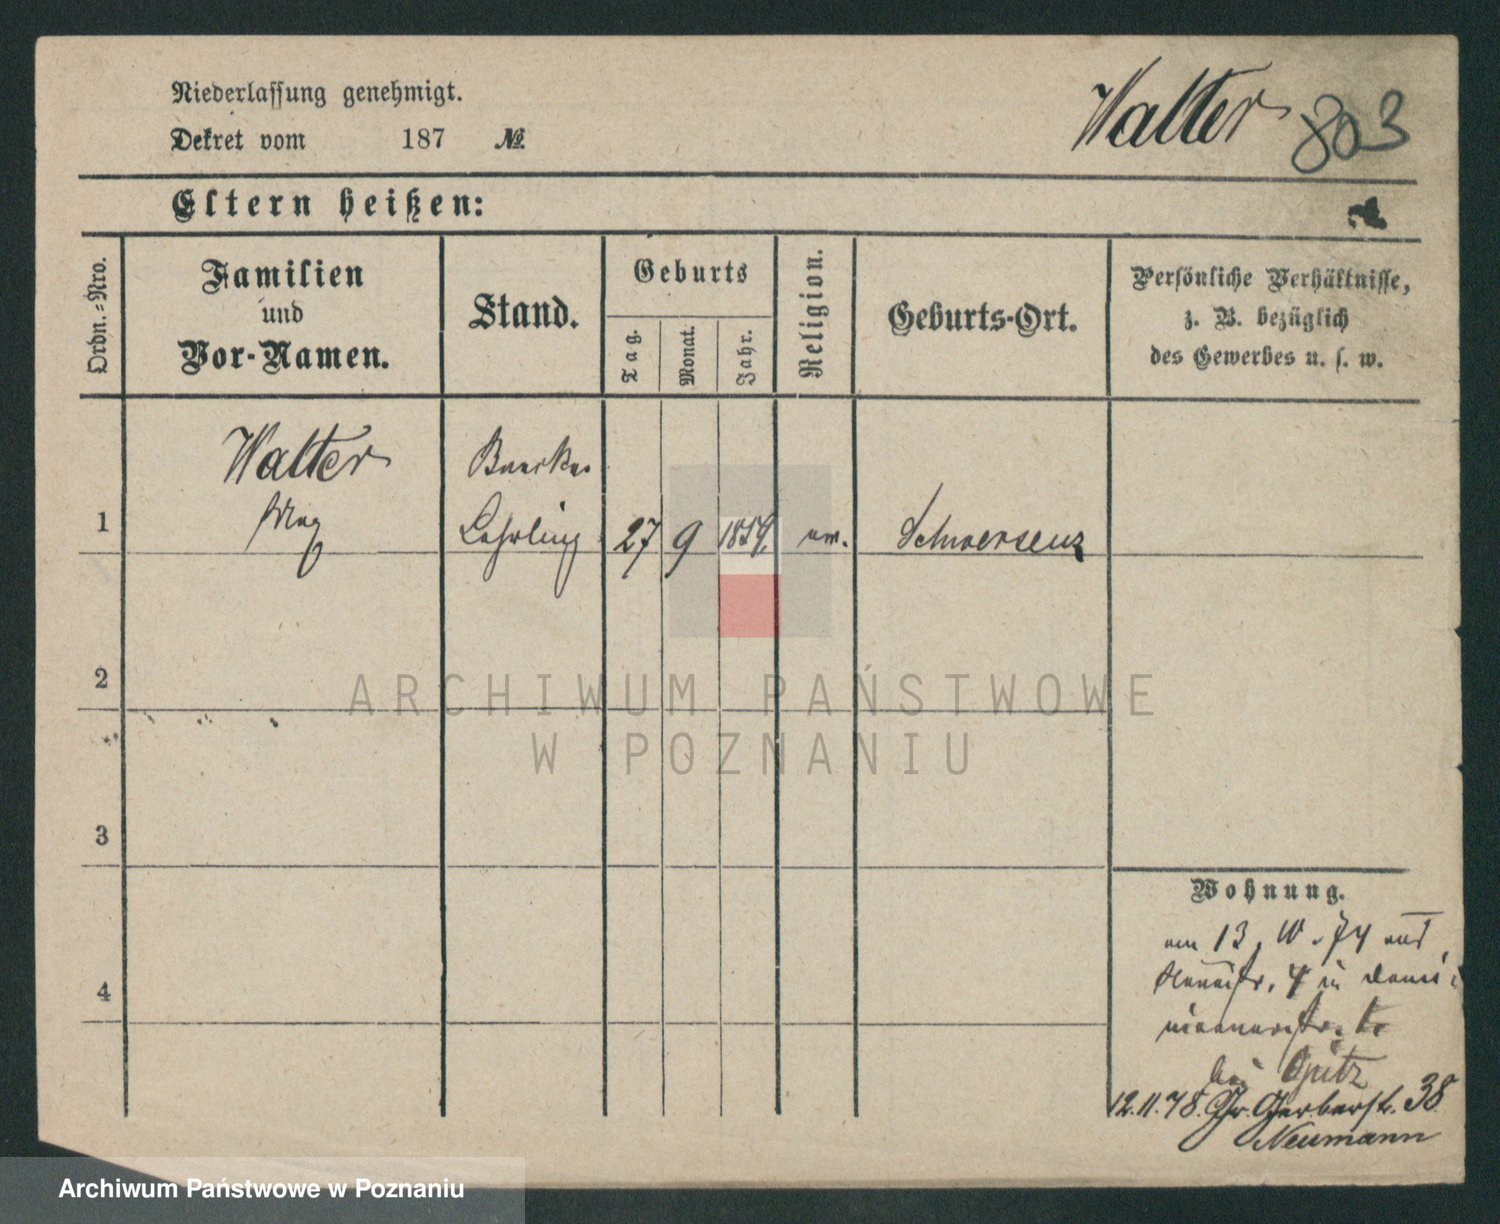 Niederlassung genehmigt.
Walter 803
Dekret vom 187 №
Eltern heißen:
Ordn.-Nro.
Familien
und
Vor-Namen.
Stand.
Geburts
Tag.
Monat.
Jahr.
Religion.
Geburts-Ort.
Persönliche Verhältnisse,
z. B. bezüglich
des Gewerbes u. s. w.
Walter
1
Lehrling 27 9 1859. ev. Schwersenz
2
ARCHIWUM PAŃSTWOWE
W POZNANIU
3
Wohnung.
am 13. 74
4
bei Opitz
12.11.78. Gr. Gerberstr. 38
Neumann
Archiwum Państwowe w Poznaniu